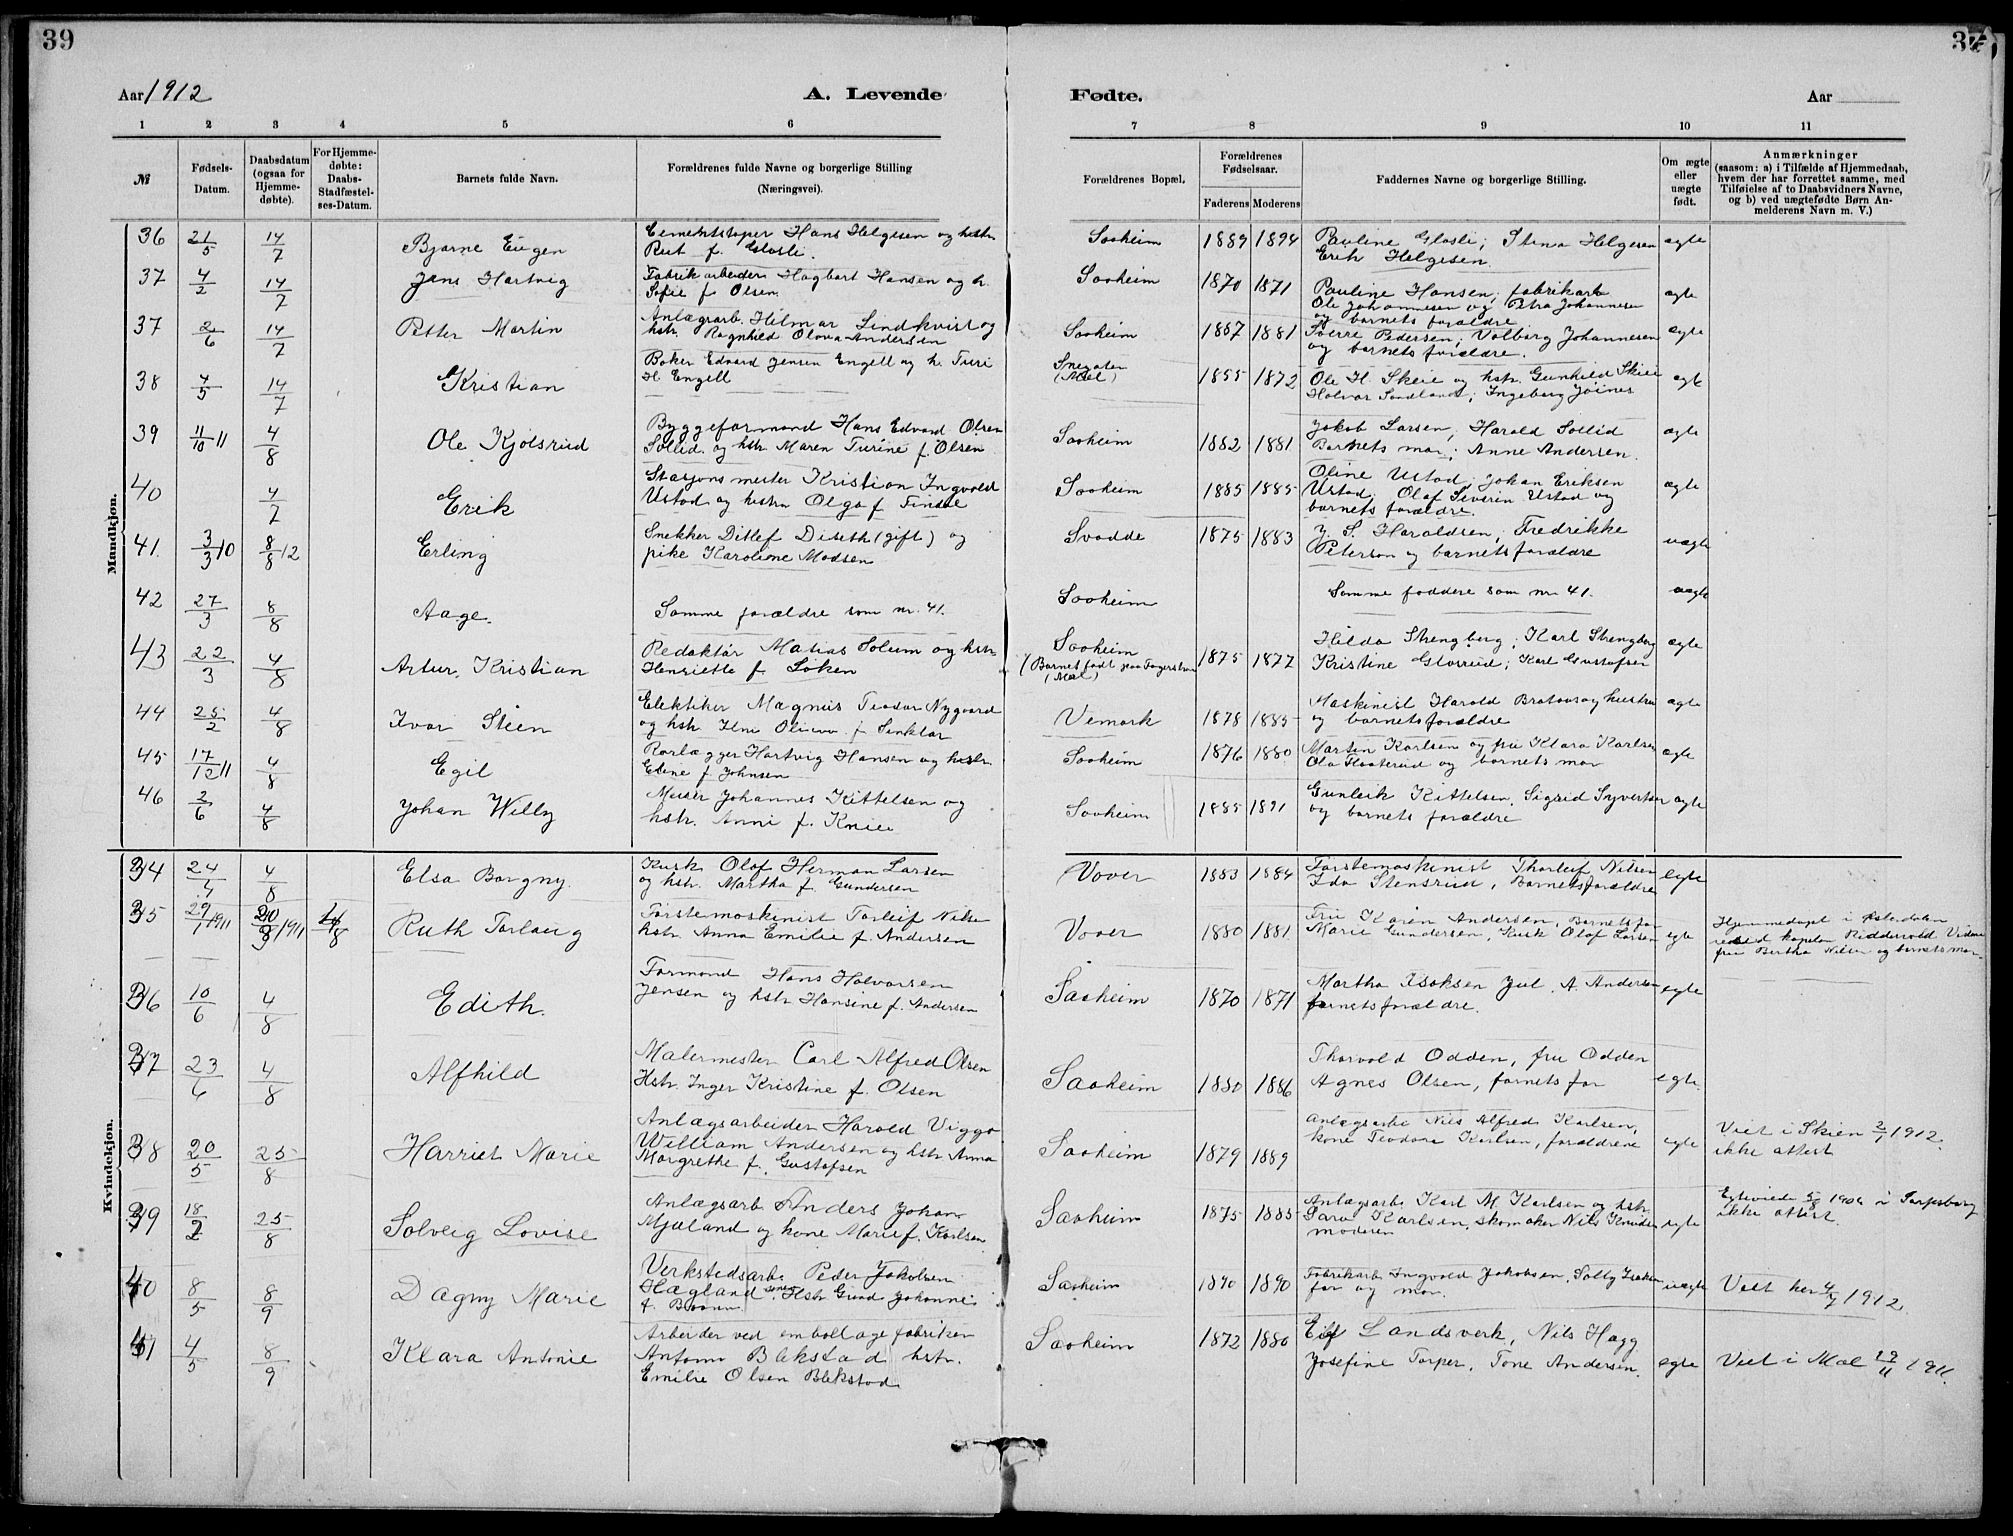 39
37
Aar 1912
A. Levende Fødte.
Aar
1 2 3 4 5 6 7 8 9 10 11
№
Fødsels-Datum.
Daabsdatum (ogsaa for Hjemme-døbte).
For Hjemme-døbte: Daabs-Stadfæstel-ses-Datum.
Barnets fulde Navn.
Forældrenes fulde Navne og borgerlige Stilling (Næringsvei).
Forældrenes Bopæl.
Forældrenes Fødselsaar.
Faderens Moderens
Faddernes Navne og borgerlige Stilling.
Om ægte eller uægte født.
Anmærkninger
(saasom: a) i Tilfælde af Hjemmedaab,
hvem der har forrettet samme, med
Tilføielse af to Daabsvidners Navne,
og b) ved uægtefødte Børn An-
melderens Navn m. V.)
Mandkjøn.
36 21/5 14/7 Bjarne Eugen
Cementstøper Hans Helgesen og hstr.
Rut f. Glasli.
Saaheim 1889 1894
Pauline Glasli; Stina Helgesen
Erik Helgesen.
ægte
37 4/2 14/7 Jens Hartvig
Fabrikarbeider Hagbart Hansen og h.
Sofie f. Olsen.
Saaheim 1870 1871
Pauline Hansen; fabrikarb.
Ole Johannesen og Petra Johannesen
og barnets forældre
ægte
37 2/6 14/7 Petter Martin
Anlægarb. Hilmar Lindkvist og
hstr. Ragnhild Olava Andersen
Saaheim 1887 1881
Sverre Pedersen; Valborg Johannesen
og barnets forældre.
ægte
38 4/5 14/7 Kristian
Baker Edvard Jensen Engell og h. Turi
H. Engell
(Mæl) 1855 1872
Ole H. Skeie og hstr. Gunhild Skeie
Halvor Sandland; Ingeborg
ægte
39 11/10 11 4/8 Ole Kjølsrud
Byggeformand Hans Edvard Olsen
Sollid og hstr. Maren Turine f. Olsen
Saaheim 1882 1881
Jakob Larsen; Harald Sollid
Barnets mor; Anne Andersen.
ægte
40 4/7 Erik
Stasjonsmester Kristian Ingvald
Ustad og hstru Olga f. Findse
Saaheim 1885 1885
Oline Ustad; Johan Eriksen
Ustad; Olaf Severin Ustad og
barnets forældre.
ægte
41. 3/3 10 8/8 12 Erling
Snekker Ditlef Diseth (gift) og
pike Karoline Madsen
Svadde 1875 1883
J. S. Haraldsen; Fredrikke
Peterson og barnets forældre
uægte
42 27/3 8/8 Aage.
Samme forældre som nr. 41.
Saaheim
Samme faddere som nr. 41.
uægte
43 22/3 4/8 Artur Kristian
Redaktør Matias Solum og hstr
Henriette f. Løken
Saaheim
(Barnet født paa Fagerstrand
(Mæl) 1875 1877
Hilda Strengberg; Karl Strengberg
Kristine Glosrud; Karl Gustafsen
ægte
44 25/2 4/8 Ivar Steen
Elektiker Magnus Teodor Nygaard
og hstr.
Vemork 1878 1885
Maskinist Harald Brataas og hustru
og barnets forældre
ægte
45 17/12 11 4/8 Egil
Rørlægger Hartvig Hansen og hstr.
Eline f. Johnsen
Saaheim 1876 1880
Martin Karlsen og fru Klara Karlsen
Ola Flaaterud og barnets mor
ægte
46 2/6 4/8 Johan Willy
Murer Johannes Kittelsen og
hstr. Anni f. Knive
Saaheim 1885 1891
Gunleik Kittelsen, Sigrid Syvertsen
og barnets forældre
ægte
Kvindekjøn.
34 24/4 4/8 Elsa Borgny.
Kusk Olaf Herman Larsen
og hstr. Martha f. Gundersen
Vaaer 1883 1884
Førstemaskinist Thorleif Nilsen
Ida Stensrud, Barnets forældre
egte
35 29/1 1911 20/3 1911 4/8 Ruth Torlaug
Førstemaskinist Torleif Nilsen
hstr. Anna Emilie f. Andersen
Vaaer 1880 1881.
Fru Karen Andersen, Barnets far
Marie Gundersen, Kusk Olaf Larsen
egte
Hjemmedøpt i Østerdalen
ved kapelan Ridderwold Vidnu
fru Bertha Nilsen og barnets mor
36 10/6 4/8 Edith.
Formand Hans Halvorsen
Jensen og hstr. Hansine f. Andersen
Saaheim 1870 1871
Martha Isaksen Jul. A. Andersen
barnets forældre.
egte
37 23/6 4/8 Alfhild
Malermester Carl Alfred Olsen
Hstr. Inger Kristine f. Olsen
Saaheim 1880 1886
Thorvald Odden, fru Odden
Agnes Olsen, barnets far
egte.
38 20/5 25/8 Harriet Marie
Anlægsarbeider Harald Viggo
William Andersen og hstr. Anna
Margrethe f. Gustafsen
Saaheim 1879 1889
Anlægsarb. Nils Alfred Karlsen,
kone Teodora Karlsen, forældrene
egte
Viet i Skien 2/1 1912.
ikke attest
39 18/2 25/8 Solveig Lovise
Anlægsarb Anders Johan
Mjæland og kone Marie f. Karlsen
Saaheim 1875 1885
Anlægsarb. Karl M. Karlsen og hstr.
Sara Karlsen, skomaker Nils Knudsen
moderen
egte
Egteviede 5/8 1904 i Sarpsborg
ikke attest.
40 8/5 8/9 Dagny Marie
Verkstedsarb. Peder Jakobsen
Hægland senere Hstr. Gund Johanne
f. Baann
Saaheim 1890 1890
Fabrikarb. Ingvald Jakobsen, Solly Isaksen
far og mor.
uægte
Viet her 4/7 1912.
41 4/5 8/9 Klara Antonie
Arbeider ved emballage fabriken
Anton Blekstad hstr.
Emilie Olsen Blekstad
Saaheim 1872 1880
Landsverk, Nils Hagg
Josefine Torper, Tone Andersen.
egte
Viet i Mæl 29/11 1911.